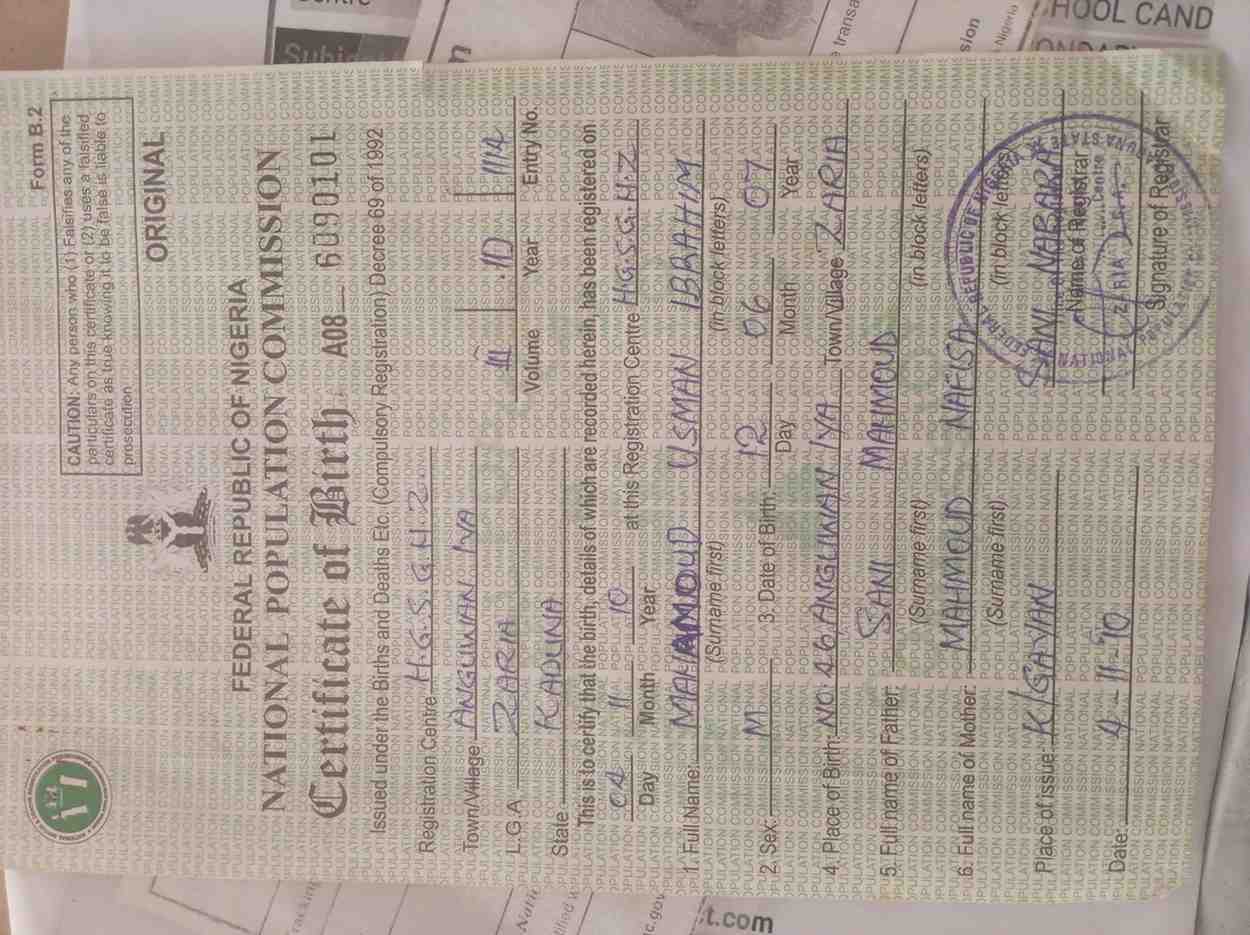 Form B.2
CAUTION: Any person who (1) Falsifies any of the
particulars on this certificate or (2) uses a falsified
certificate as true knowing it to be false is liable to
prosecution
ORIGINAL
FEDERAL REPUBLIC OF NIGERIA
NATIONAL POPULATION COMMISSION
Certificate of Birth A08 6090101
Issued under the Births and Deaths Etc. (Compulsory Registration) Decree 69 of 1992
Registration Centre H.G.S.G.H.Z.
Town/Village ANGUWAN IYA
L.G.A ZARIA III 10 1112
Volume Year Entry No.
State KADUNA
This is to certify that the birth, details of which are recorded herein, has been registered on
04 11 10 at this Registration Centre H.G.S.G.H.Z
Day Month Year
1. Full Name: MAHAMOUD USMAN IBRAHIM
(Surname first) (in block letters)
2. Sex: M 3. Date of Birth: 12 06 07
Day Month Year
4. Place of Birth: NO. 46 ANGUWAN IYA Town/Village ZARIA
5. Full name of Father: SANI MAHMOUD
(Surname first) (in block letters)
6. Full name of Mother: MAHMOUD NAFISA
(Surname first) (in block letters)
Place of Issue: K/GAYAN SANI NABARA
Name of Registrar
Date: 4-11-10
Signature of Registrar
FEDERAL REPUBLIC OF NIGERIA
NATIONAL POPULATION COMMISSION
.com